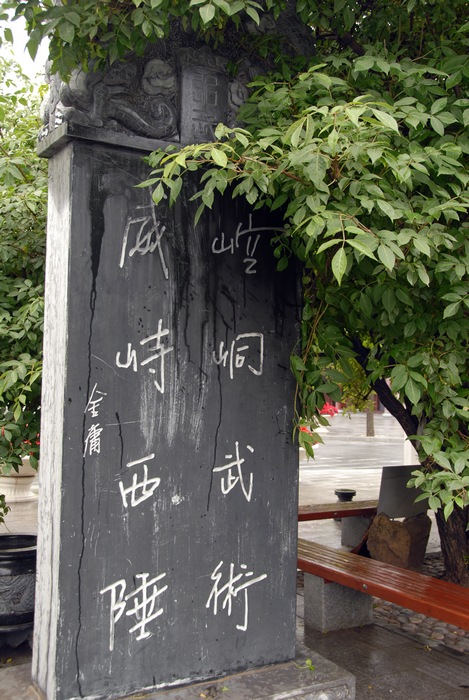 崆峒武術
威峙西陲
金庸